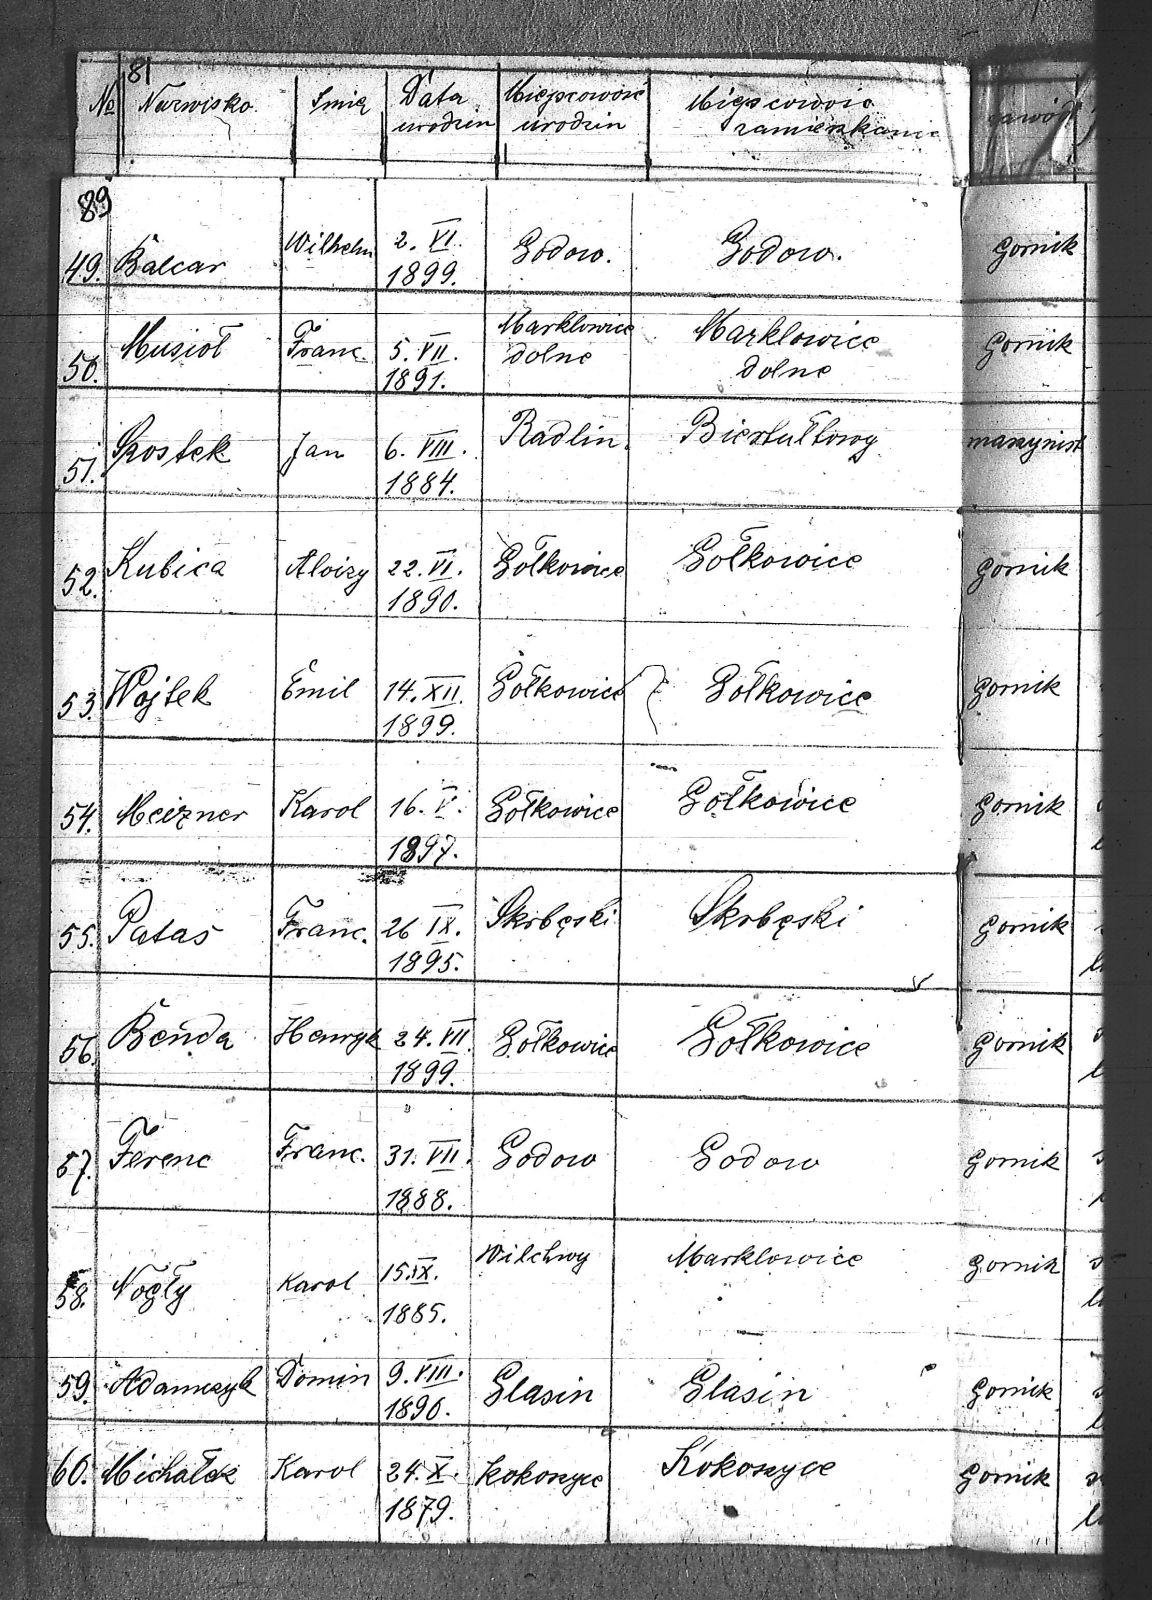 81
№ Nazwisko Imię Data urodzin Miejscowość urodzin Miejscowość zamieszkania zawód
89
49. Balcar Wilhelm 2. VI. 1899. Godow. Godow. Gornik
50. Musioł Franc. 5. VII. 1891. Marklowice dolne Marklowice dolne Gornik
51. Jan 6. VIII. 1884. Radlin. Biertułtowy maszynist
52. Kubica Aloizy 22. VI. 1890. Gołkowice Gołkowice Gornik
53. Wojtek Emil 14. XII. 1899. Gołkowice Gołkowice Gornik
54. Meizner Karol 16. V. 1897. Gołkowice Gołkowice Gornik
55. Patas Franc. 26 IX. 1895. Skrbęski Skrbęski Gornik
56. Benda Henryk 24. VII 1899. Gołkowice Gołkowice Gornik
57. Ferenc Franc. 31. VII. 1888. Godow Godow Gornik
58. Nogły Karol 15. IX. 1885. Wilchwy Marklowice Gornik
59. Adamczyk Domin 9. VIII. 1890. Glasin Glasin Gornik
60. Karol 24. X. 1879. Kokoszyce Kokoszyce Gornik